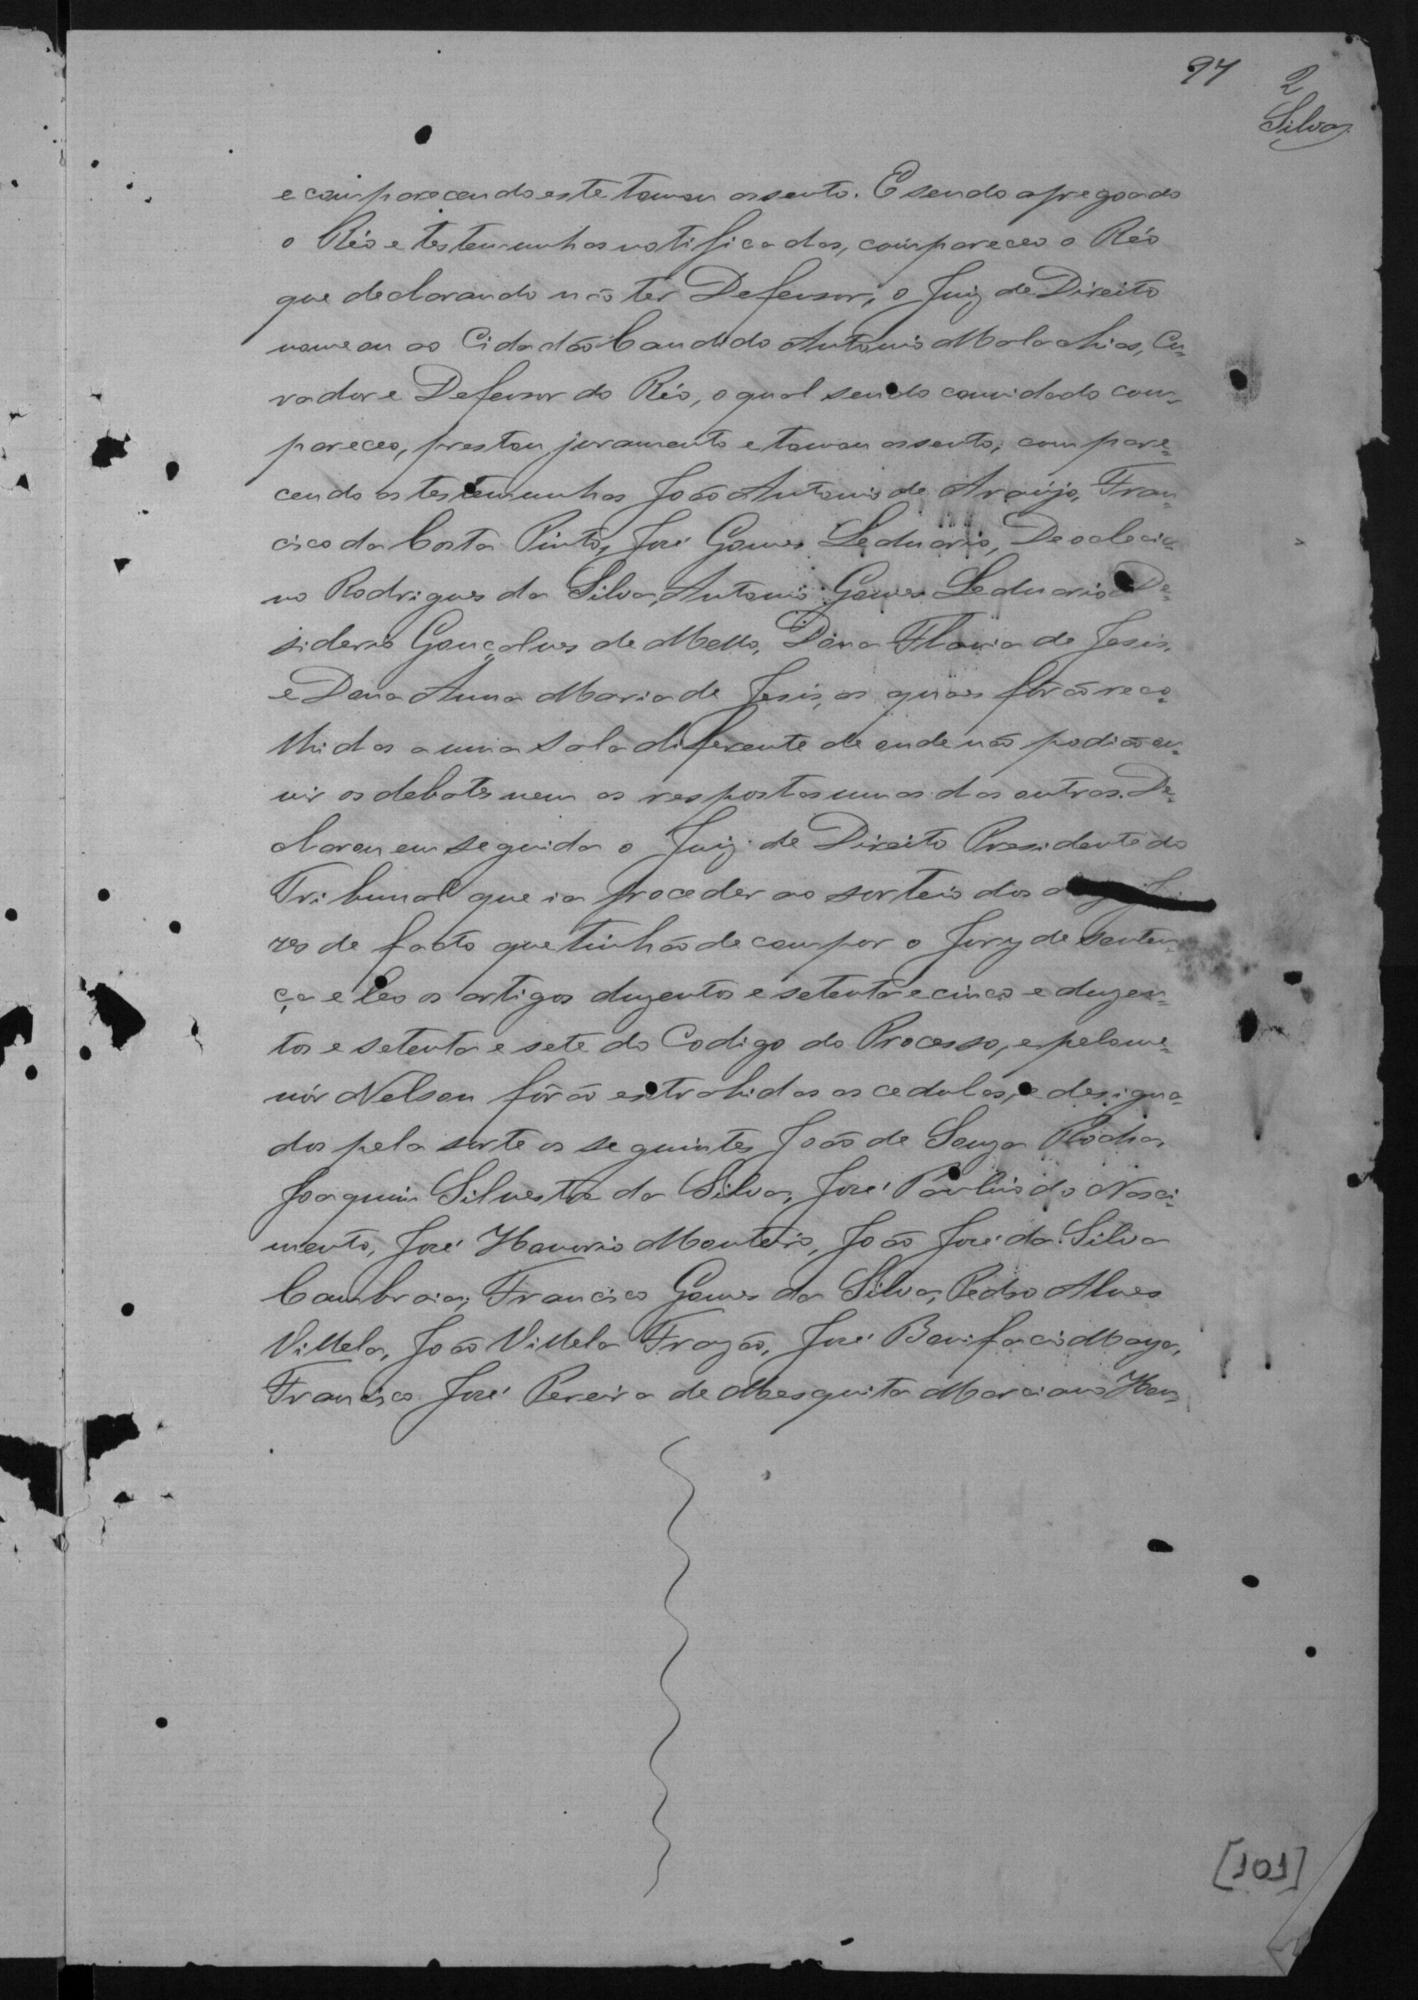 94
2
Silva
e comparecendo este tomou assento. E sendo apregoado
o Réo e testemunhas notificadas, compareceo o Réo
que declarando não ter Defensor, o Juiz de Direito
nomeou ao Cidadão Candido Antonio Malachias, Cu-
rador e Defensor do Réo, o qual sendo convidado com-
pareceo, prestou juramento e tomou assento; compare=
cendo as testemunhas João Antonio de Araújo, Fran-
cisco da Costa Pinto, José Gomes Leduario, Deoclecia-
no Rodrigues da Silva, Antonio Gomes Leduario, De=
siderio Gonçalves de Mello, Dona Flavia de Jesus,
e Dona Anna Maria de Jesus, as quaes fôrão reco-
lhidas a uma sala differente de onde não podião ou-
vir os debates nem as respostas umas das outras. De-
clarou em seguida o Juiz de Direito Presidente do
Tribunal que ia proceder ao sorteio dos
zes de facto que tinhão de compor o Jury de senten-
ça e leo os artigos duzentos e setenta e cinco e duzen-
tos e setenta e sete do Codigo do Processo, e pelo me-
nór Nelson fôrão extrahidas as cedulas, e designa-
dos pela sorte os seguintes João de Souza Rocha,
Joaquim Silvestre da Silva, José Paulino do Nasci-
mento, José Honorio Monteiro, João José da Silva
Cambraia, Francisco Gomes da Silva, Pedro Alves
Villela, João Villela Frazão, José Bonifacio Maya,
Francisco José Pereira de Mesquita Marciano Hon
[101]